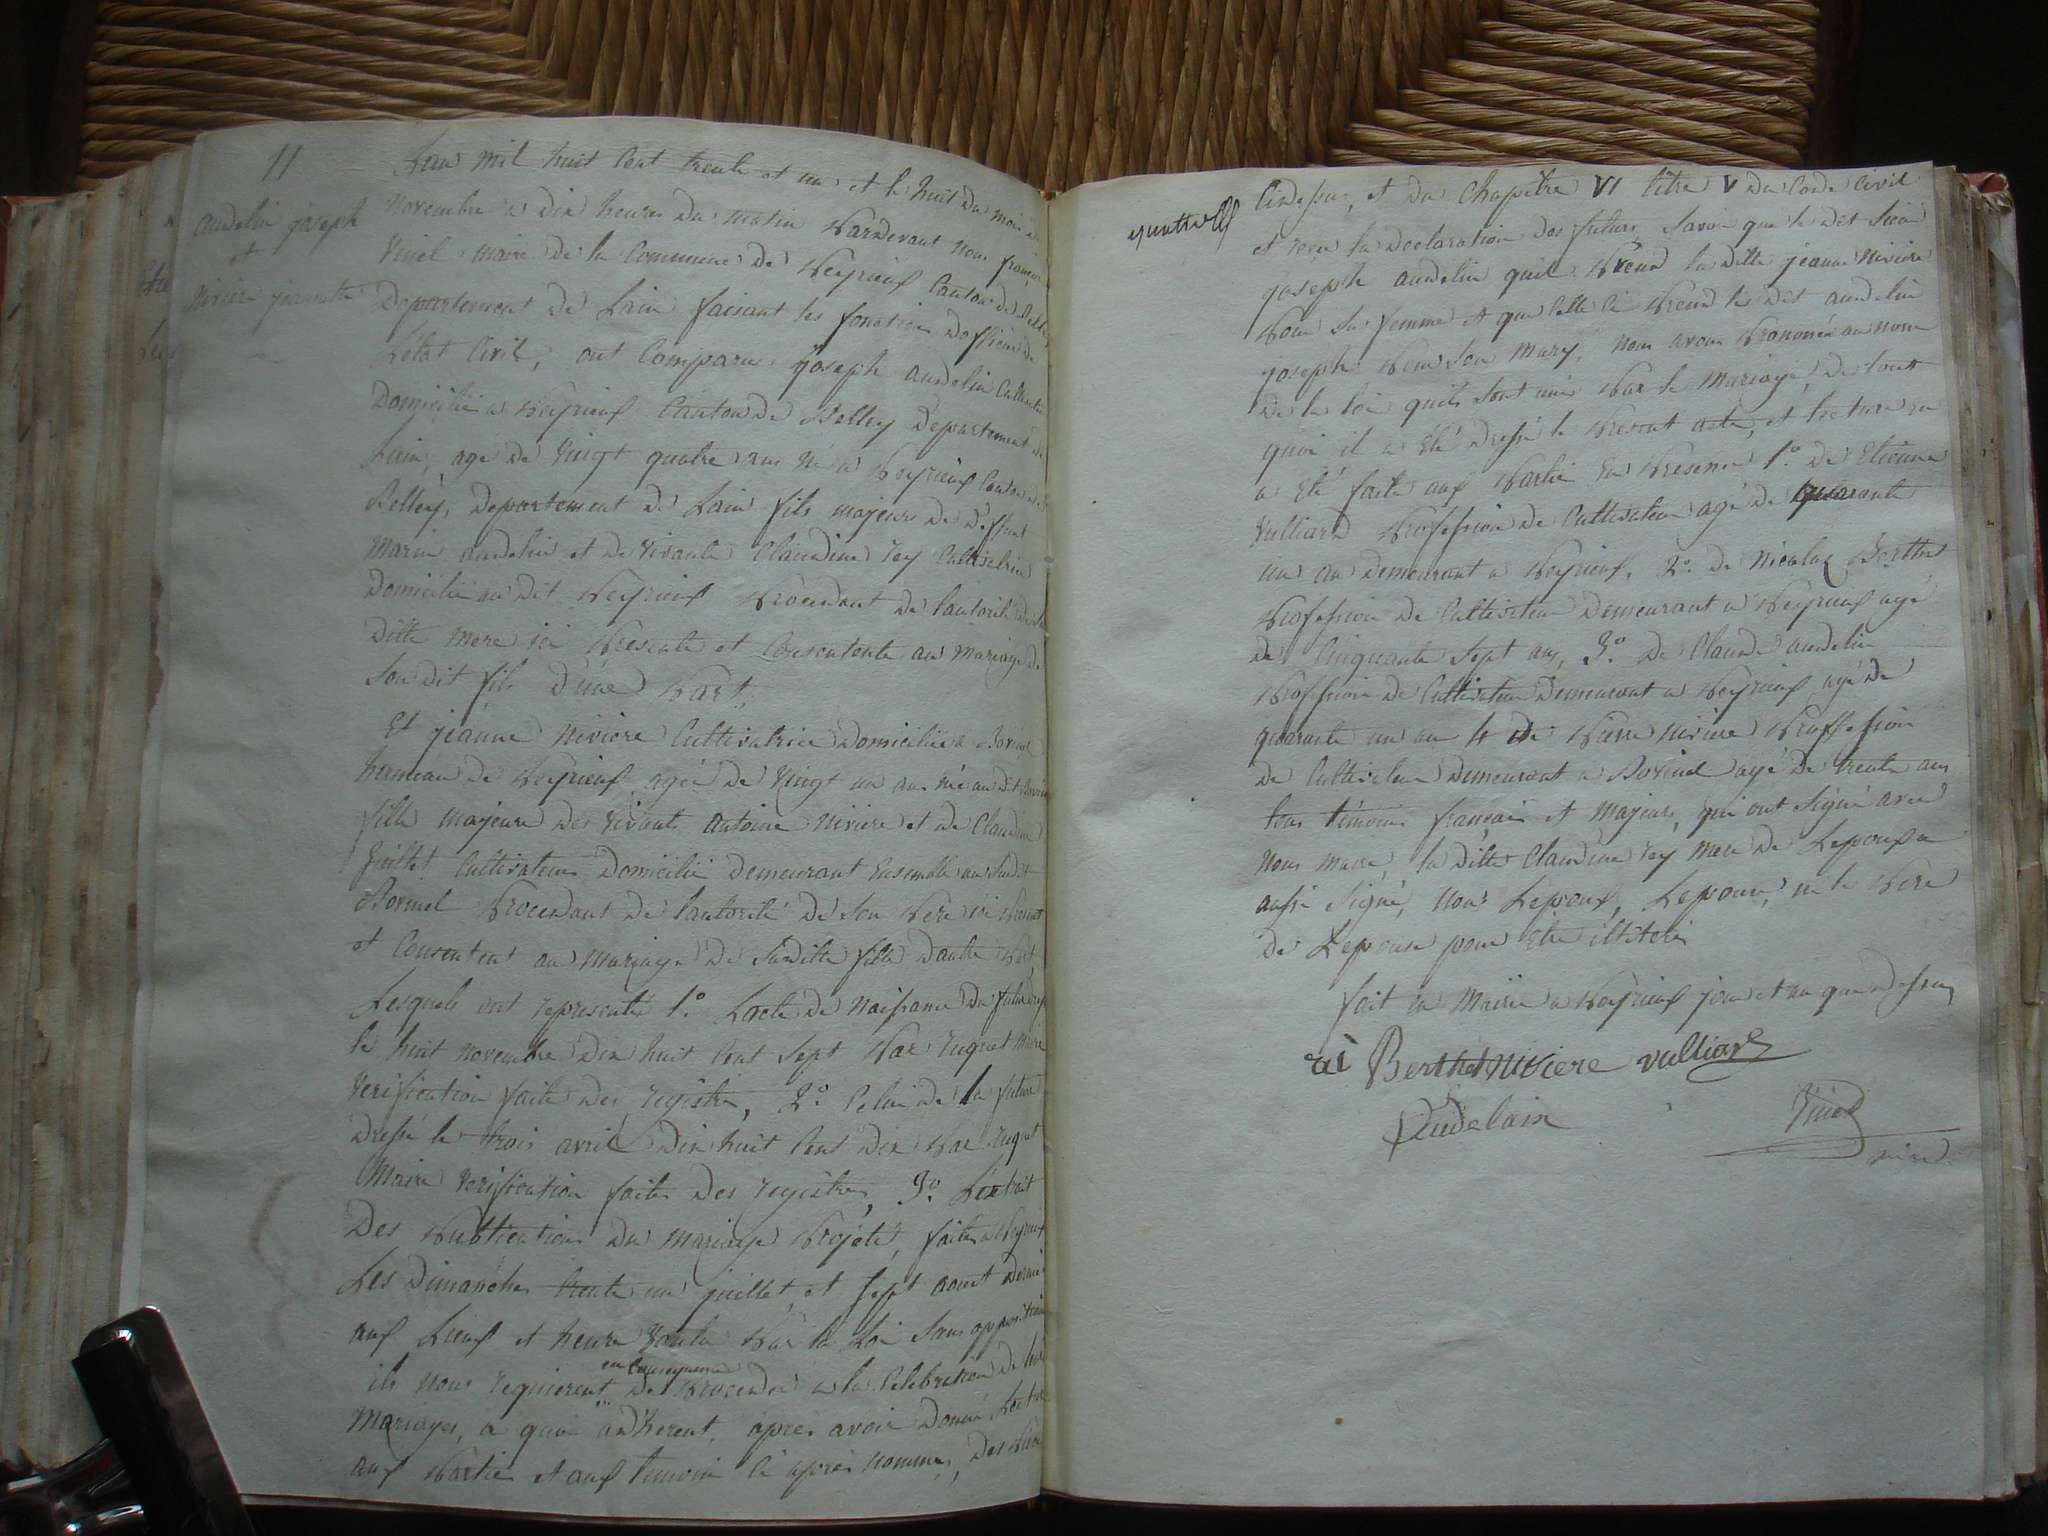 11
audelin joseph
et
Nivière jeannette
Lan mil huit Cent trente et un et le huit du mois de
Novembre a dix heures du matin Pardevant nous françois
Vinel maire de la Commune de Peyrieux Canton de Belley
Departement de Lain faisant les fonctions Dofficier de
Létat Civil, ont Comparu joseph audelin Cultivateur
Domicilié a Peyrieux Canton de Belley Département de
Lain, agé de Vingt quatre ans né a Peyrieux Canton de
Belley, Departement de Lain fils majeur de Deffunt
Marin audelin et de vivante Claudine rey Cultivatrice
Domicilié au Dit Peyrieux Procedant de lautorité de sa
Ditte mere ici Presente et Consentente au mariage de
Son dit fils D'une Part,
Et jeanne Nivière Cultivatrice Domiciliée a
hameau de Peyrieux agée de Vingt un ans née au dit
fille majeure des vivants antoine Nivière et de Claudine
Cultivateurs Domicilié Demeurant Ensemble au Sudit
Procedant de lautorité de Son Pere ici Present
et Consentent au Mariage de Saditte fille Dautre Part
Lesquels ont representé 1.º Lacte de Naissance du futur
le huit novembre Dix huit Cent Sept Par ruguet Maire
Verification faite des registre, 2.º Celui de la future
Dressé le trois avril Dix huit Cent Dix Par ruguet
Maire Verification faite Des registres, 3.º Lextrait
Des Publications du mariage Projeté, faites a Peyrieux
Les Dimanches trente un juillet et Sept aout Dernier
aux Lieux et heure Voulu Par la Loi Sans opposition
en Consequence
ils nous requierent de Proceder a la Celebration de leur
Mariage, a quoi adherent, apres avoir Donné Lecture
aux Parties et aux temoins Ci après nommés, Des Pieces
Cidessus, et du Chapitre VI titre V du Code Civil
et reçu la Declaration des futurs Savoir que le dit Sieur
joseph audelin quil Prend la ditte jeanne Nivière
Pour Sa femme et que Celle Ci Prend le Dit audelin
joseph Pour Son Mary, Nous avons Prononcé au nom
De la loi quils Sont unis Par le Mariage, De tout
quoi il a été dressé le Present acte, et lecture en
a été faite aux Parties En Presence 1.º De Etienne
Vulliard Profession de Cultivateur agé de quarante
un an demeurant a Peyrieux, 2.º de Nicolas Berthet
Profession de Cultivateur Demeurant a Peyrieux agé
de Cinquante Sept ans, 3.º De Claude audelin
Profession de Cultivateur Demeurant a Peyrieux agé De
quarante un an 4 de Pierre Nivière Proffession
de Cultivateur Demeurant a agé De trente ans
tous temoins français et Majeurs, qui ont Signé avec
Nous maire, la ditte Claudine rey mere de Lepoux a
aussi Signé, Non Lepoux, Lepouse, ni le Pere
de Lepouse pour être illiteré
fait en Mairie a Peyrieux jour et an que dessus
rai Berthet Niviere vulliard
Audelain Vinel
maire